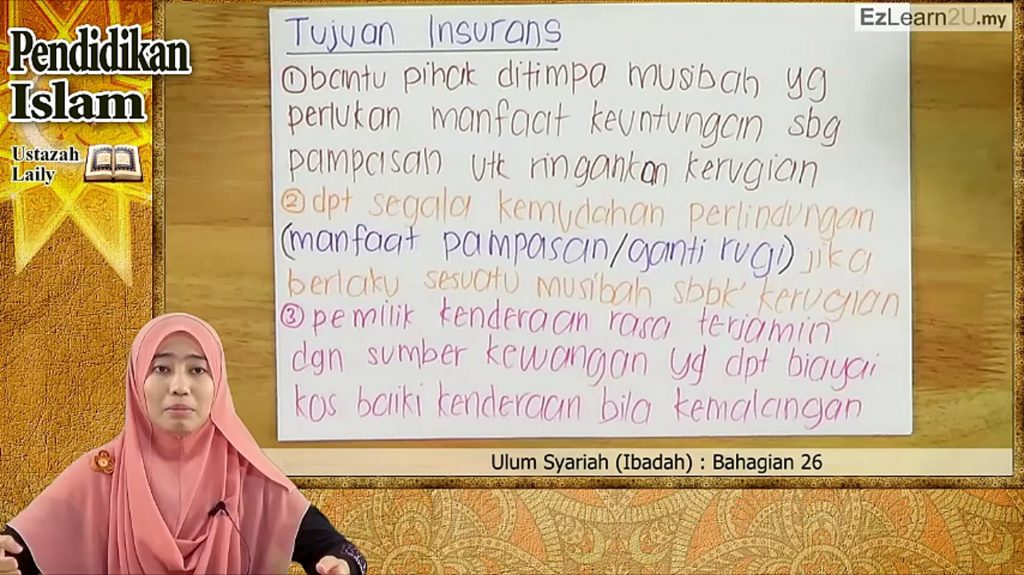 EzLearn2U.my
Pendidikan
Islam
Ustazah
Laily
Tujuan Insurans
① bantu pihak ditimpa musibah yg
perlukan manfaat keuntungan sbg
pampasan utk ringankan kerugian
② dpt segala kemudahan perlindungan
(manfaat pampasan/ganti rugi) jika
berlaku sesuatu musibah sbbk' kerugian
③ pemilik kenderaan rasa terjamin
dgn sumber kewangan yg dpt biayai
kos baiki kenderaan bila kemalangan
Ulum Syariah (Ibadah) : Bahagian 26